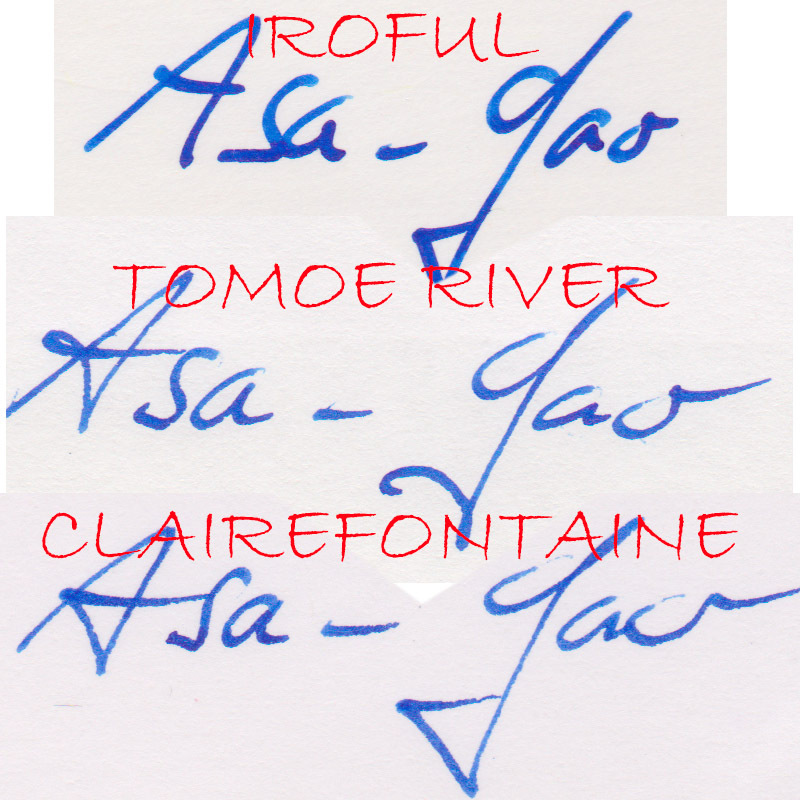 IROFUL
Asa-Gao
TOMOE RIVER
Asa-Gao
CLAIREFONTAINE
Asa-Gao